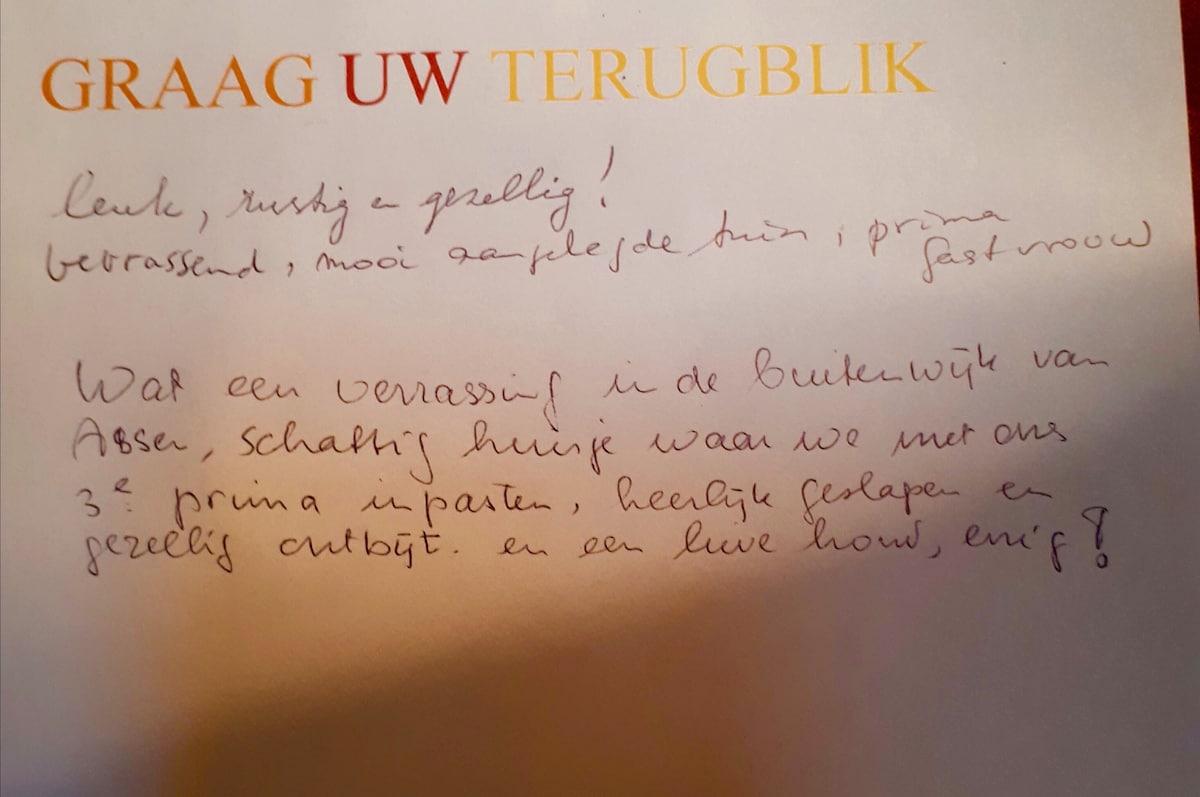 GRAAG UW TERUGBLIK
leuk, rustig en gezellig!
verrassend, mooi aangelegde tuin, prima
gastvrouw
Wat een verrassing in de buitenwijk van
Assen, schattig huisje waar we met ons
3e prima in pasten, heerlijk geslapen en
gezellig ontbijt. en een lieve hond, enig!